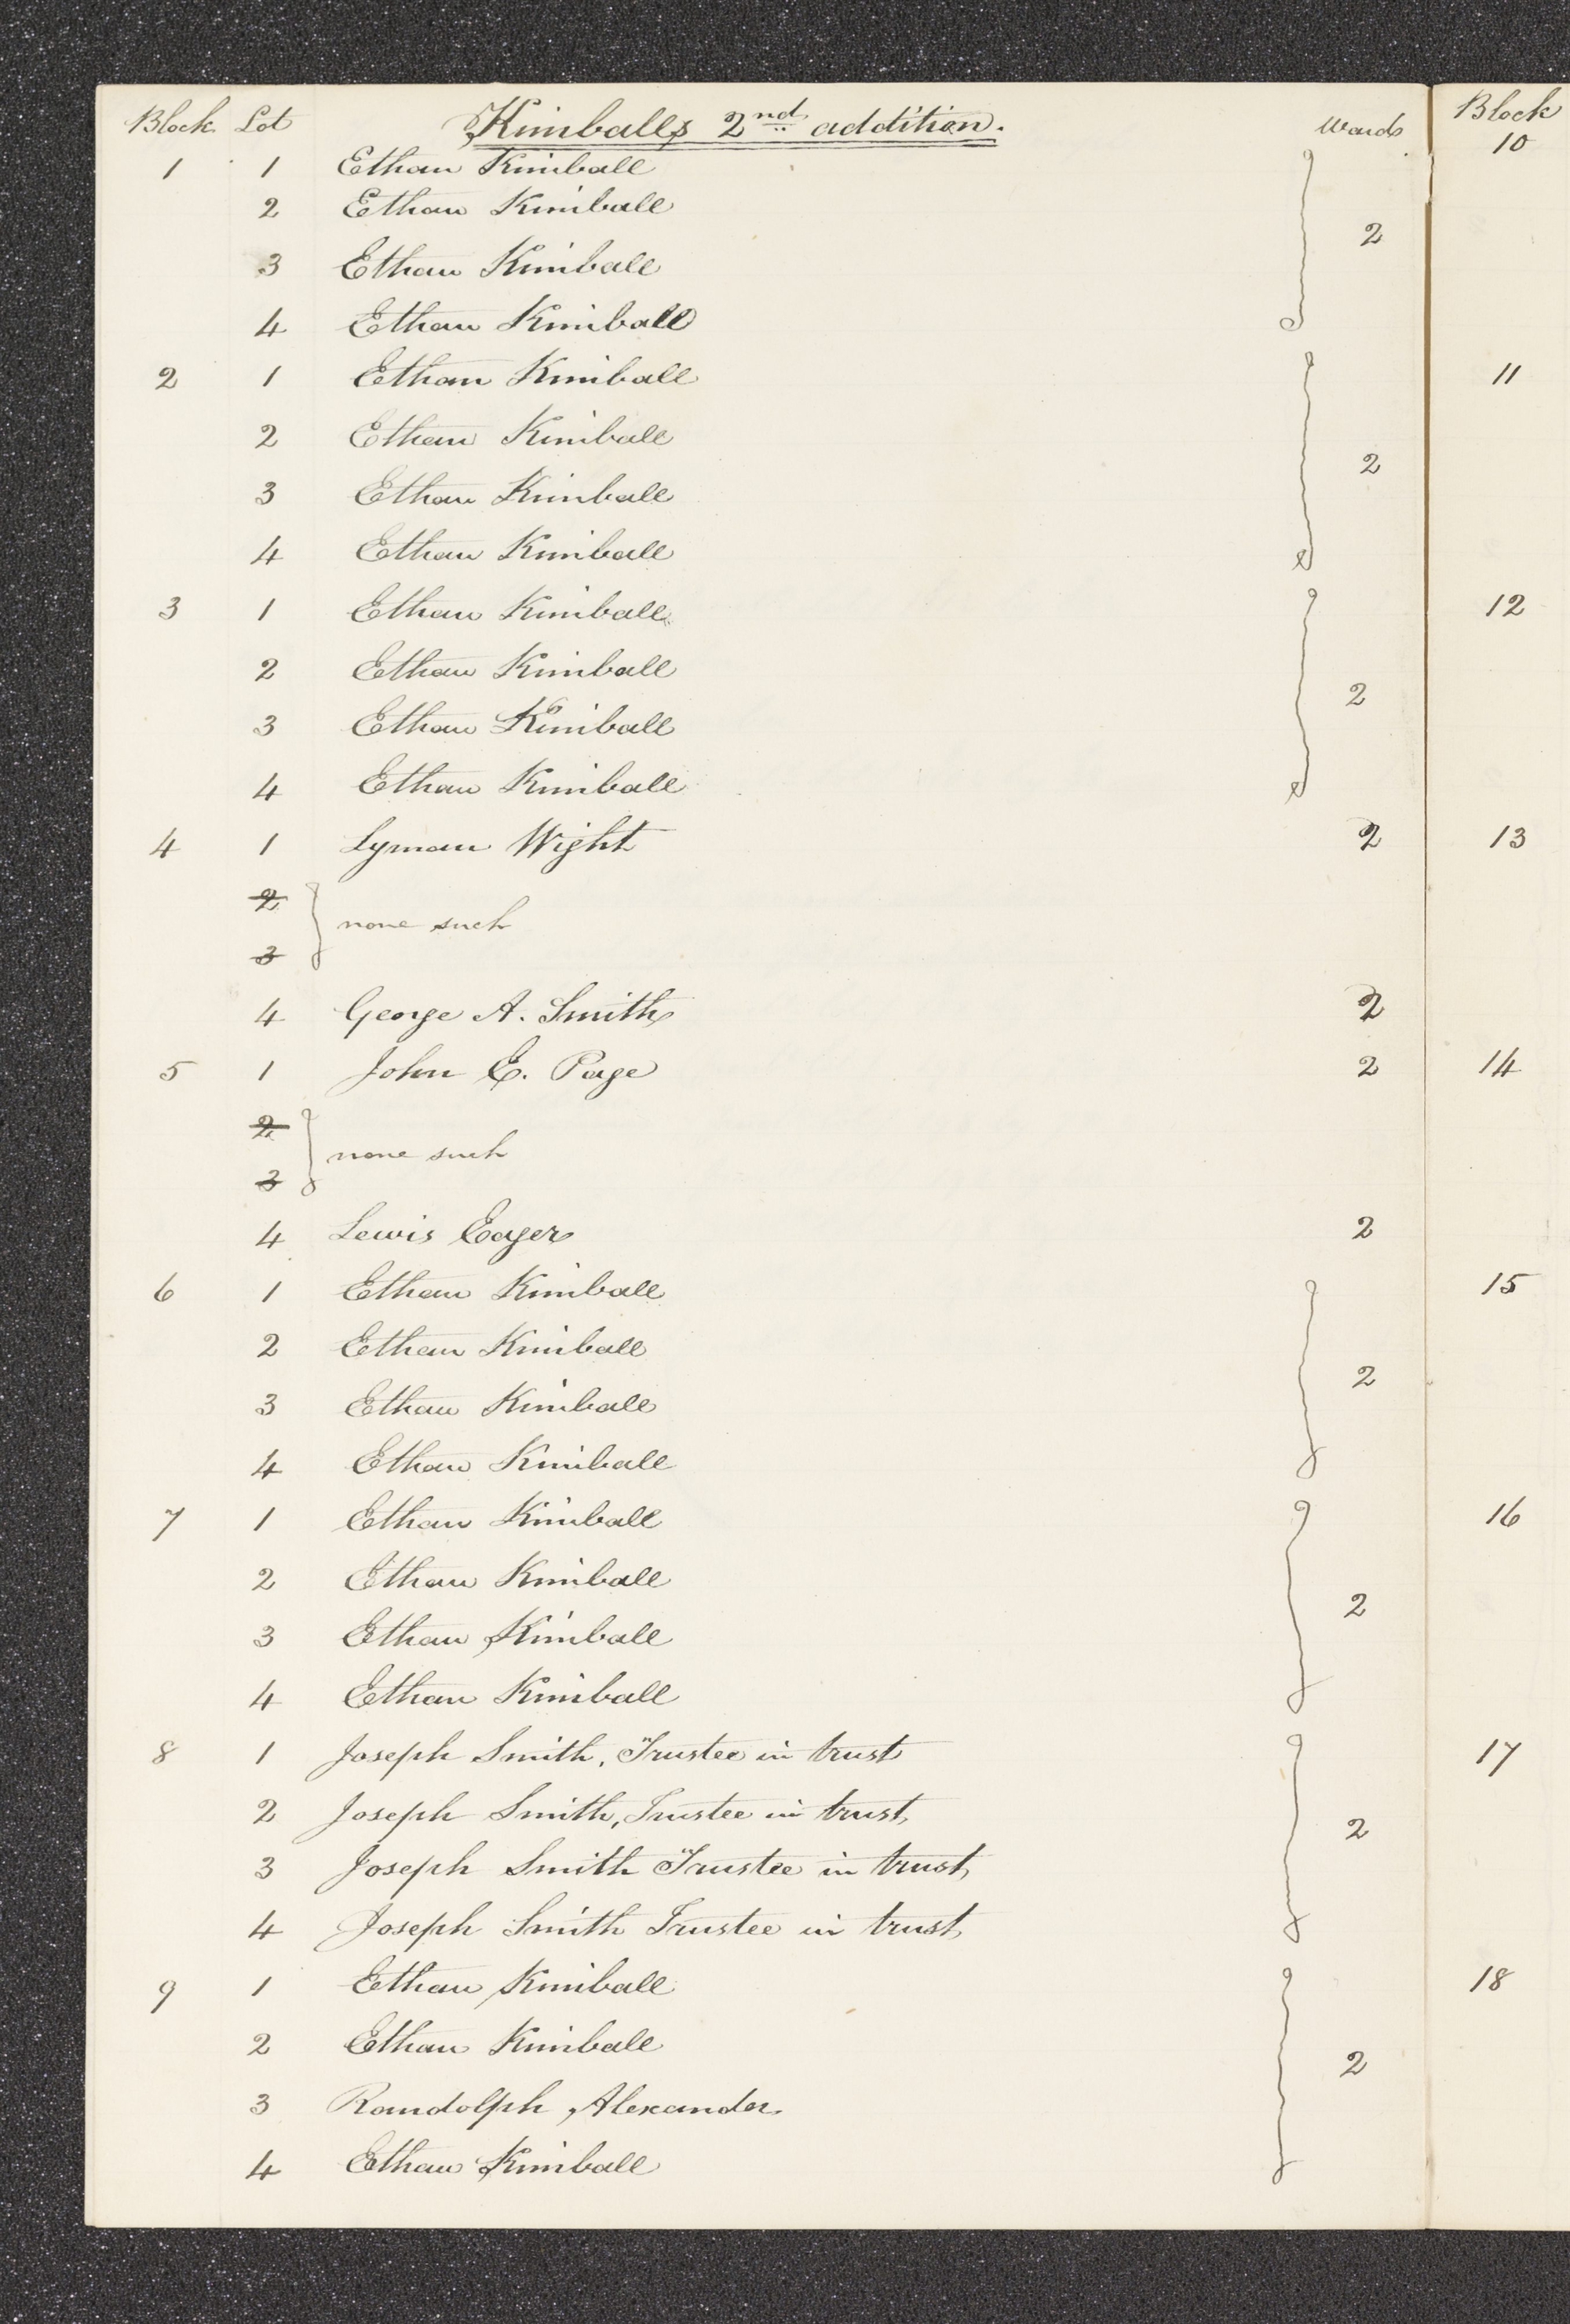 Block Lot Kimballs 2nd addition. Wards
1 1 Ethan Kimball
2 Ethan Kimball
2
3 Ethan Kimball
4 Ethan Kimball
2 1 Ethan Kimball
2 Ethan Kimball
2
3 Ethan Kimball
4 Ethan Kimball
3 1 Ethan Kimball
2 Ethan Kimball
2
3 Ethan Kimball
4 Ethan Kimball
4 1 Lyman Wight 2
2
none such
3
4 George A. Smith 2
5 1 John E. Page 2
2
none such
3
4 Lewis Eager 2
6 1 Ethan Kimball
2 Ethan Kimball
2
3 Ethan Kimball
4 Ethan Kimball
7 1 Ethan Kimball
2 Ethan Kimball
2
3 Ethan Kimball
4 Ethan Kimball
8 1 Joseph Smith, Trustee in trust
2 Joseph Smith, Trustee in trust
2
3 Joseph Smith Trustee in trust
4 Joseph Smith Trustee in trust
9 1 Ethan Kimball
2 Ethan Kimball
2
3 Randolph Alexander
4 Ethan Kimball
Block
10
11
12
13
14
15
16
17
18